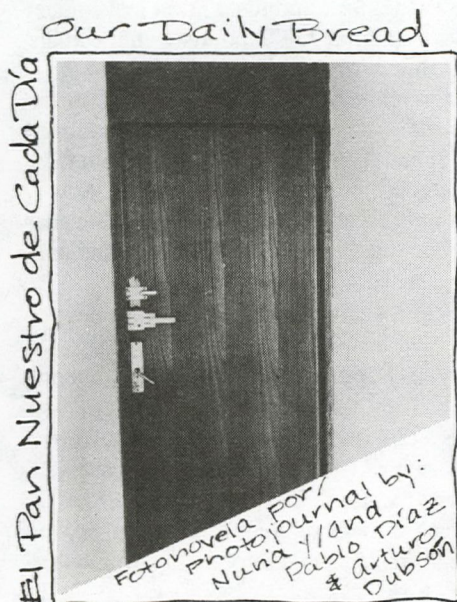 Our Daily Bread
El Pan Nuestro de Cada Día
Fotonovela por/
Photojournal by:
Nuria y/and
Pablo Díaz
& Arturo
Dubsón